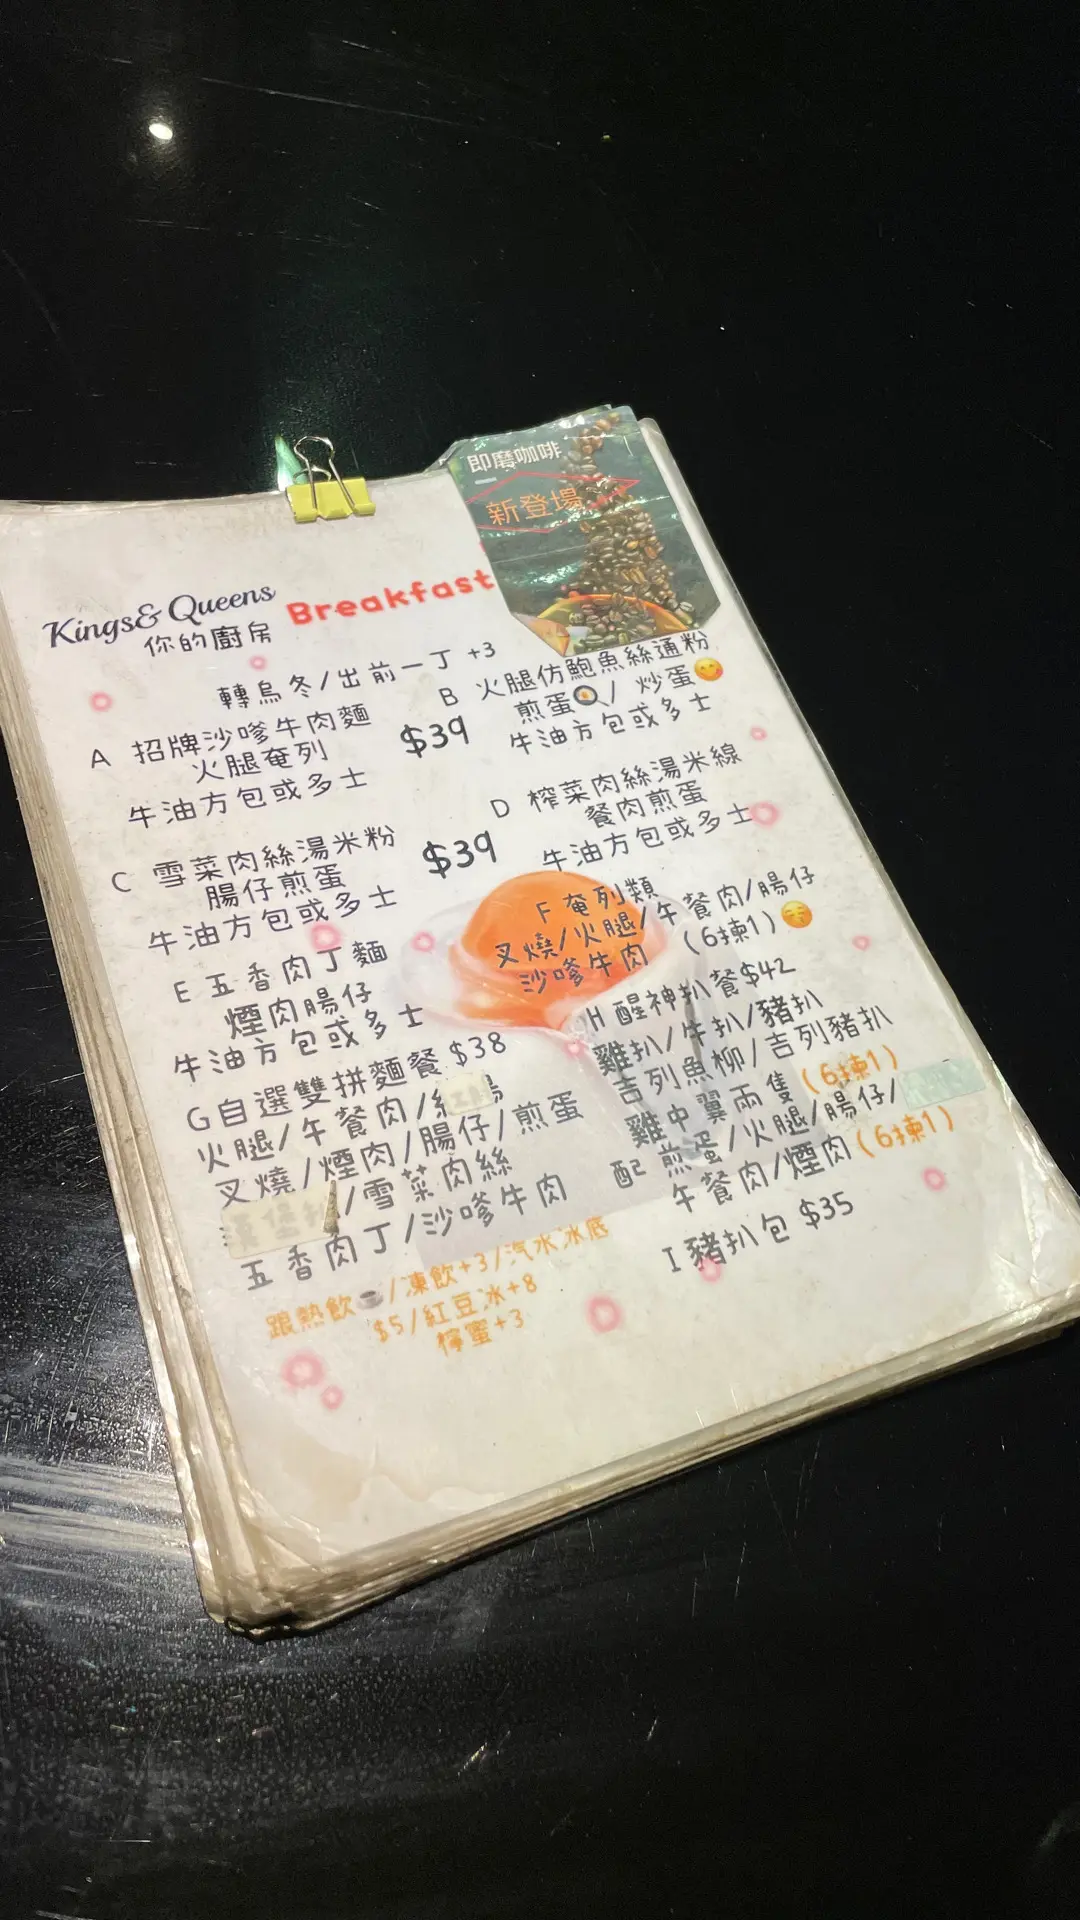 即磨咖啡
新登場
Kings& Queens
你的廚房
Breakfast
轉烏冬/出前一丁 +3
A 招牌沙嗲牛肉麵
火腿奄列
牛油方包或多士
$39
B 火腿仿鮑魚絲通粉
煎蛋🍳/ 炒蛋😋
牛油方包或多士
C 雪菜肉絲湯米粉
腸仔煎蛋
牛油方包或多士
$39
D 榨菜肉絲湯米線
餐肉煎蛋
牛油方包或多士
E 五香肉丁麵
煙肉腸仔
牛油方包或多士
F 奄列類
叉燒/火腿/午餐肉/腸仔
沙嗲牛肉 (6揀1)😋
G自選雙拼麵餐 $38
火腿/午餐肉/
叉燒/煙肉/腸仔/煎蛋
/雪菜肉絲
五香肉丁/沙嗲牛肉
H 醒神扒餐$42
雞扒/牛扒/豬扒
吉列魚柳/吉列豬扒
雞中翼兩隻 (6揀1)
配 煎蛋/火腿/腸仔/
午餐肉/煙肉(6揀1)
I 豬扒包 $35
跟熱飲☕/凍飲+3/汽水冰底
$5/紅豆冰+8
檸蜜+3